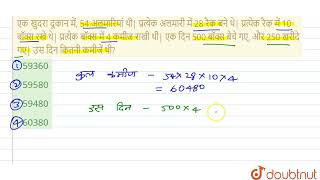 एक खुदरा दूकान में, 54 अलमारियां थी। प्रत्येक अलमारी में 28 रैक बने थे। प्रत्येक रैक में 10
बॉक्स रखे थे। प्रत्येक बॉक्स में 4 कमीज राखी थी। एक दिन 500 बॉक्स बेचे गए, और 250 खरीदे
गए। उस दिन कितनी कमीजें थी?
1 59360
2 59580
3 59480
4 60380
कुल कमीज - 54×28×10×4
= 60480
उस दिन - 500×4
doubtnut